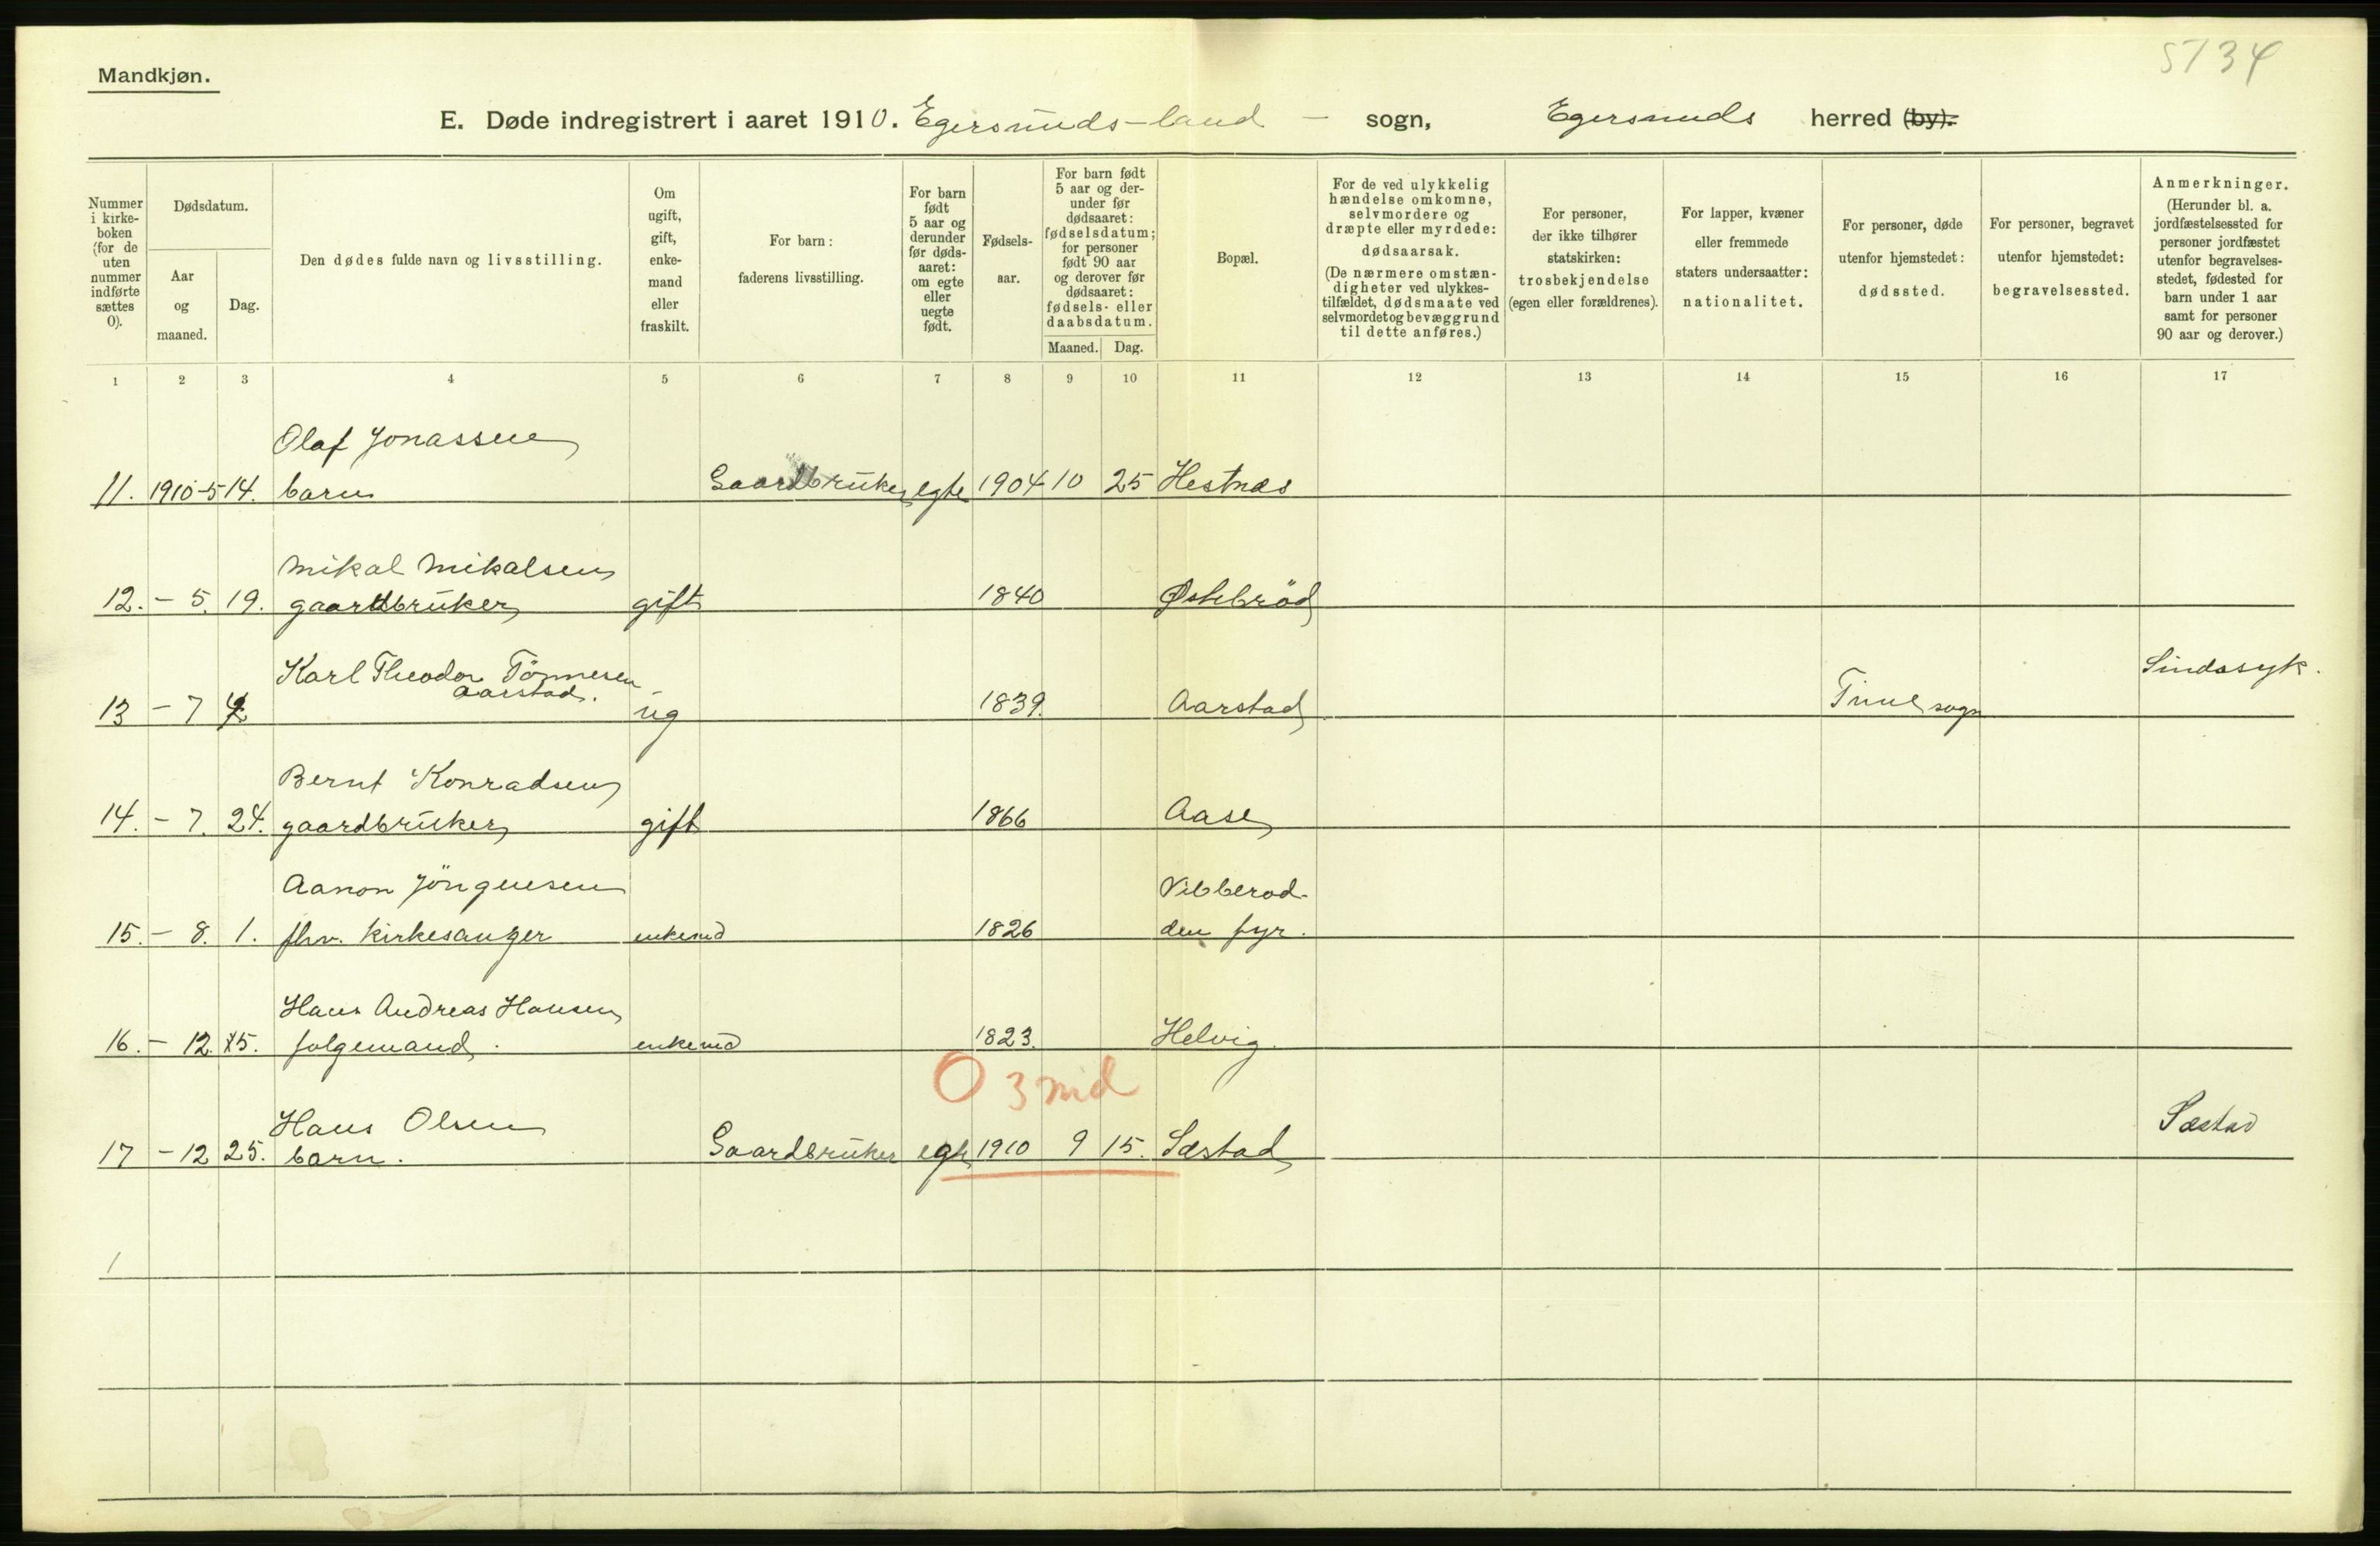 5734
Mandkjøn.
E. Døde indregistrert i aaret 1910. Egersunds-land - sogn, Egersunds herred (by).
Nummer i kirke-boken (for de uten nummer indførte sættes 0).
Dødsdatum.
Aar og maaned.
Dag.
Den dødes fulde navn og livsstilling.
Om ugift, gift, enke-mand eller fraskilt.
For barn: faderens livsstilling.
For barn født 5 aar og derunder før døds-aaret: om egte eller uegte født.
Fødsels-aar.
For barn født 5 aar og der-under før dødsaaret: fødselsdatum; for personer født 90 aar og derover før dødsaaret: fødsels- eller daabsdatum.
Maaned. Dag.
Bopæl.
For de ved ulykkelig hændelse omkomne, selvmordere og dræpte eller myrdede: dødsaarsak. (De nærmere omstæn-digheter ved ulykkes-tilfældet, dødsmaate ved selvmordet og bevæggrund til dette anføres.)
For personer, der ikke tilhører statskirken: trosbekjendelse (egen eller forældrenes).
For lapper, kvæner eller fremmede staters undersaatter: nationalitet.
For personer, døde utenfor hjemstedet: dødssted.
For personer, begravet utenfor hjemstedet: begravelsessted.
Anmerkninger. (Herunder bl. a. jordfæstelsessted for personer jordfæstet utenfor begravelses-stedet, fødested for barn under 1 aar samt for personer 90 aar og derover.)
1 2 3 4 5 6 7 8 9 10 11 12 13 14 15 16 17
Olaf Jonassen
11. 1910-5 14. barn Gaardbruker egte 1904 10 25 Hestnes
Mikal Mikalsen
12. - 5. 19. gaardbruker gift 1840 Østebrød
Karl Theodor Tönnesen Sindssyk.
Aarstad.
13 - 7 ug 1839. Aarstad Time sogn
Bernt Konradsen
14. - 7. 24. gaardbruker gift 1866 Aase
Aanon Jörgensen Vibberod-
15. - 8. 1. fhv. kirkesanger enkemd 1826 den fyr.
Hans Andreas Hansen
16. - 12. 15. folgemand. enkemd 1823. Helvig.
O 3 md
Hans Olsen Sæstad
17 - 12 25. barn. Gaardbruker egte 1910 9 15. Sæstad
1